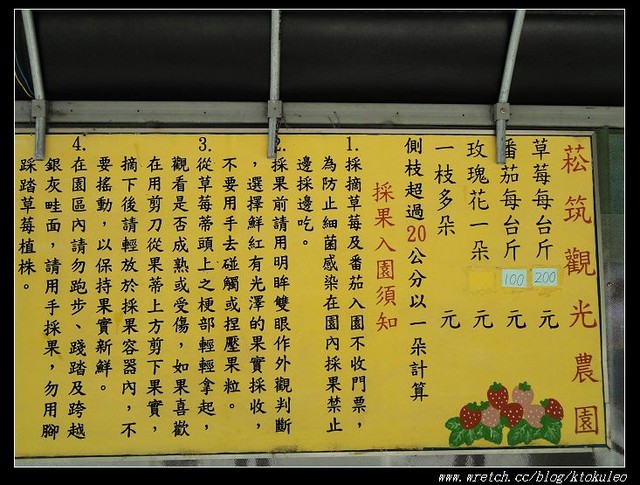 菘筑觀光農園
草莓每台斤 200 元
番茄每台斤 100 元
玫瑰花一朵 元
一枝多朵 元
側枝超過20公分以一朵計算
採果入園須知
1. 採摘草莓及番茄入園不收門票，
為防止細菌感染在園內採果禁止
邊採邊吃。
2. 採果前請用明眸雙眼作外觀判斷
，選擇鮮紅有光澤的果實採收，
不要用手去碰觸或捏壓果粒。
3. 從草莓蒂頭上之梗部輕輕拿起，
觀看是否成熟或受傷，如果喜歡
在用剪刀從果蒂上方剪下果實，
摘下後請輕放於採果容器內，不
要搖動，以保持果實新鮮。
4. 在園區內請勿跑步、踐踏及跨越
銀灰畦面，請用手採果，勿用腳
踩踏草莓植株。
www.wretch.cc/blog/ktokuleo